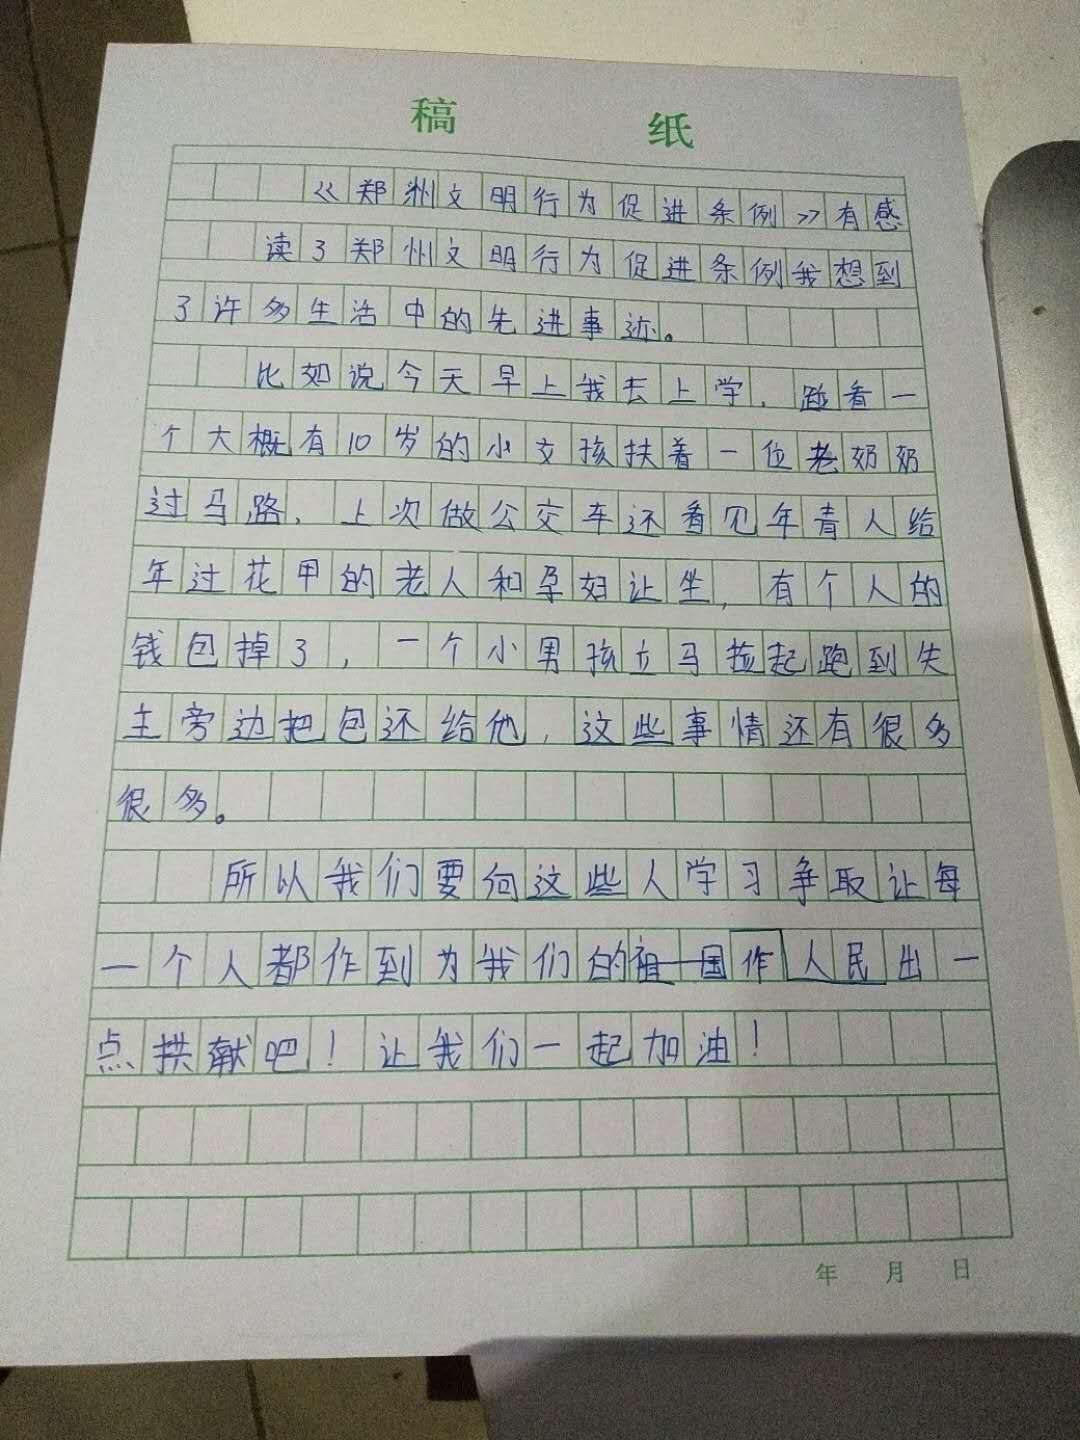 稿 纸
《郑州文明行为促进条例》有感
读了郑州文明行为促进条例我想到
了许多生活中的先进事迹。
比如说今天早上我去上学,碰看一
个大概有10岁的小女孩扶着一位老奶奶
过马路,上次做公交车还看见年青人给
年过花甲的老人和孕妇让坐,有个人的
钱包掉了,一个小男孩立马捡起跑到失
主旁边把包还给他,这些事情还有很多
很多。
所以我们要向这些人学习争取让每
一个人都作到为我们的祖国作人民出一
点拱献吧!让我们一起加油!
年 月 日